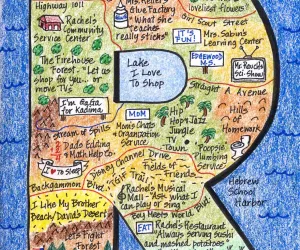 Highway 1011
Rachel's
Community
Service Center
Mrs. Keller's
Glue Factory
"What she
teaches
really sticks"
loveliest flowers"
Girl Scout Street
IT'S
FUN!
Mrs. Sabin's
Learning Center
The Firehouse
Forest - "Let us
shop for you or
move TVs
Lake
I Love
To Shop
EDGEWOOD
M.S.
Mr. Rausch's
Sci-Shop
Straight A Avenue
I'm Gaga
for Kadima
Stream of Spills
MOM
Mom's Chats
Organization
Service
Hip
Hop & Jazz
Jungle
TV
Town
Hills
of
Homework
Dad's Editing
& Math Help Co.
I ♥ to Sleep
Poopsie
Plumping
Service
Disney Channel Drive
Fields of
Friends
TGIF Trail
Backgammon Blvd.
I Like My Brother
Beach/David's Desert
Rachel's Musical
Mall "Ask what I
can play or sing"
Boy Meets World
Hebrew
School
Harbor
Forest
EAT
Rachel's Restaurant
"Always serving sushi
and mashed potatoes"